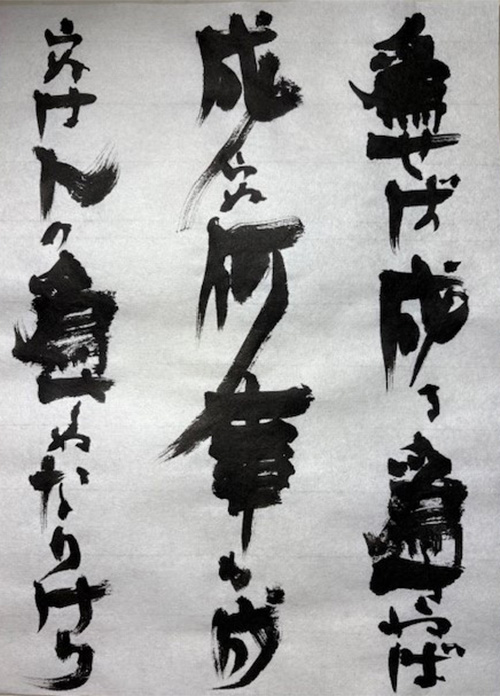 為せば成る為さねば
成らぬ何事も成
らぬは人の為さぬなりけり